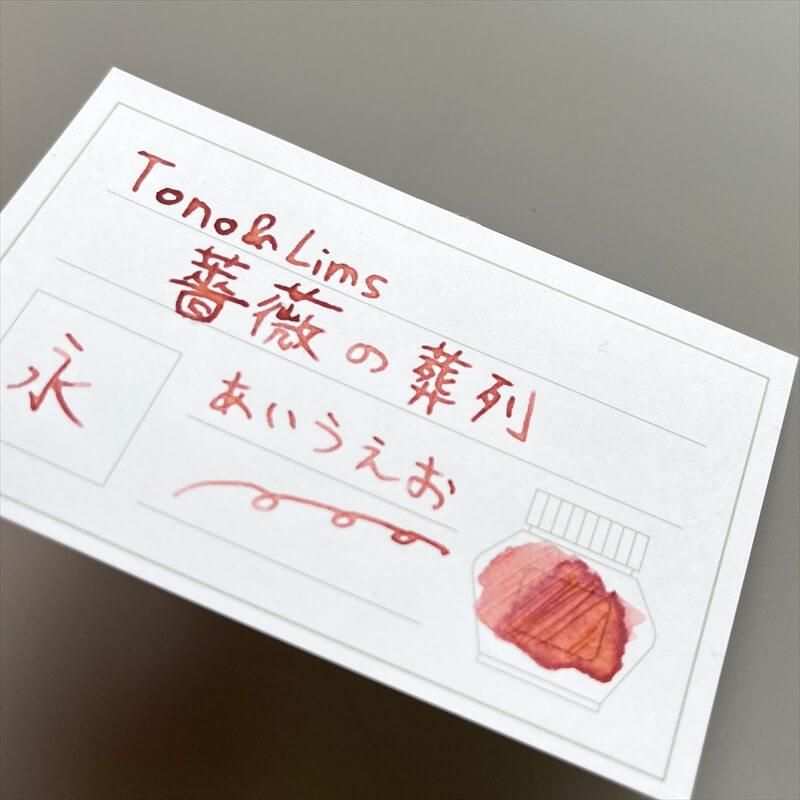 Tono&Lims
薔薇の葬列
永
あいうえお